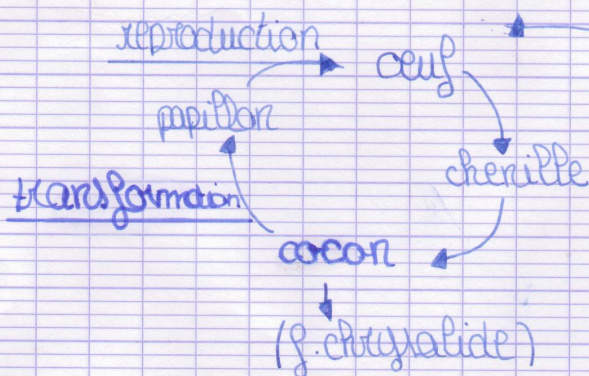 reproduction
œuf
papillon
chenille
transformation
cocon
(f. chrysalide)